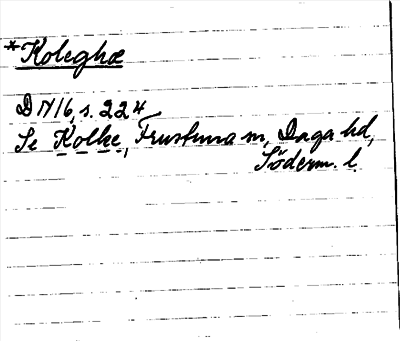 *Koleghæ
DN 16, s. 224
Se Kolke, Frustuna sn, Daga hd,
Söderm. l.